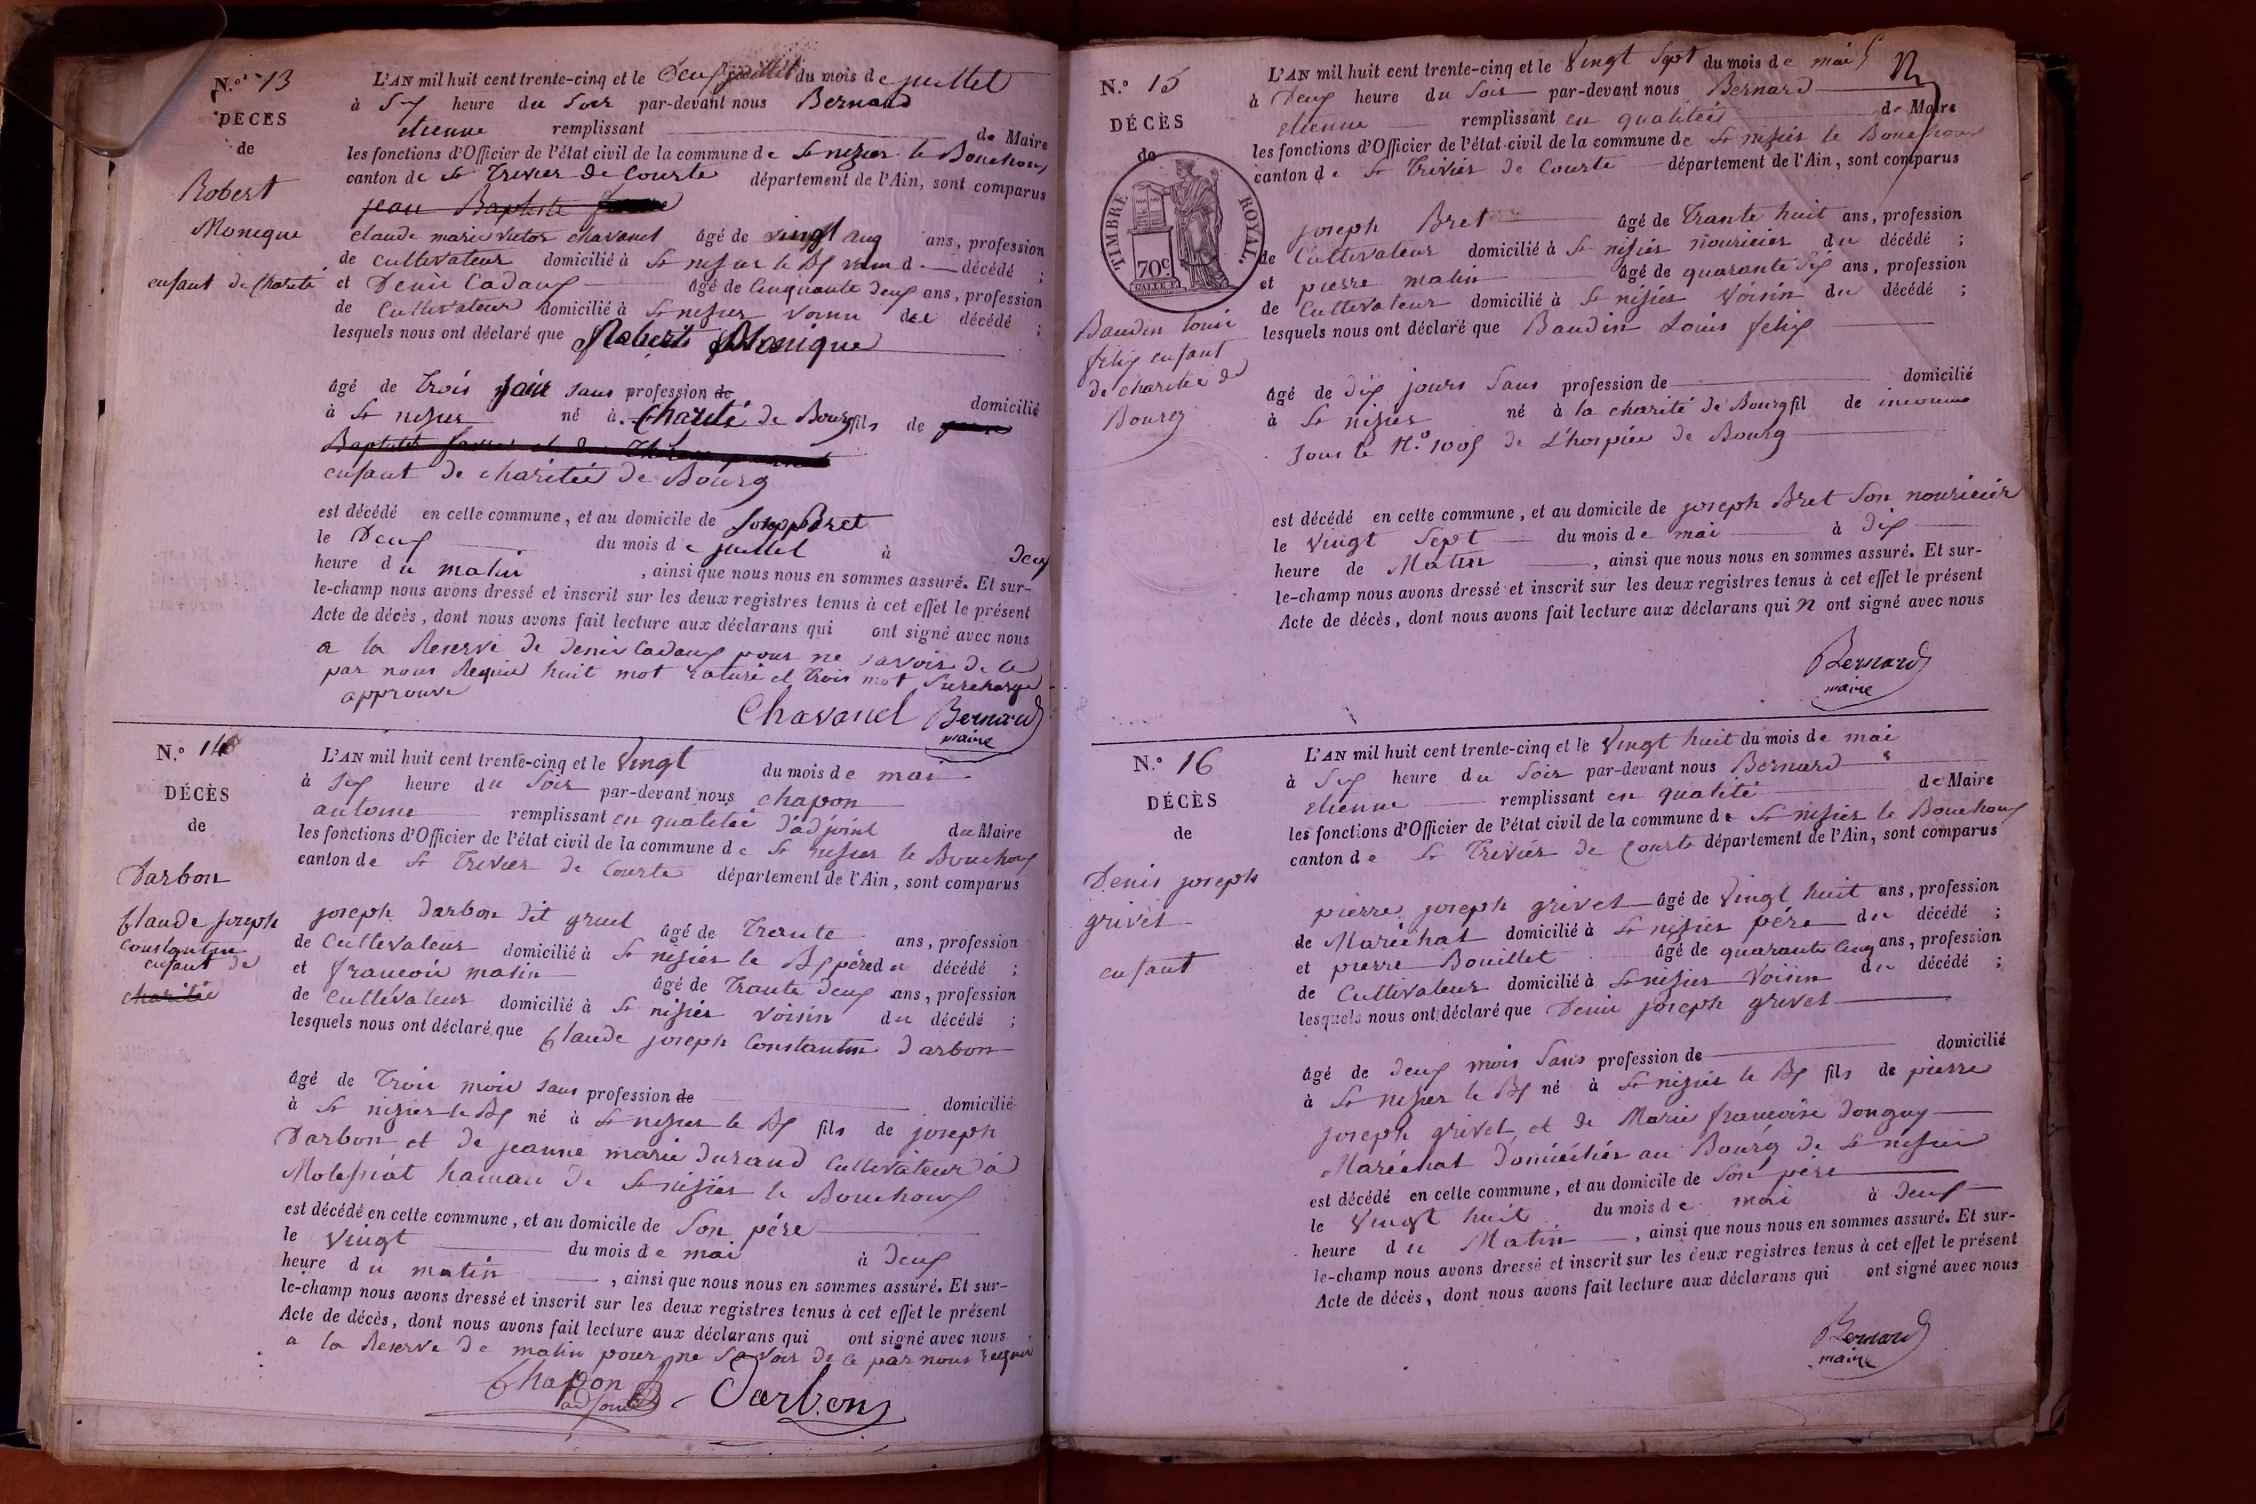 N.º 13
DÉCÈS
de
Robert
Monique
enfant de Charité
L'AN mil huit cent trente-cinq et le Deux juillet du mois de juillet
à Six heure du Soir par-devant nous Bernard
etienne remplissant de Maire
les fonctions d'Officier de l'état civil de la commune de St nisier le Bouchoux
canton de St Trivier de Courte département de l'Ain, sont comparus
jean Baptiste
claude marie victor chavanel âgé de vingt cinq ans, profession
de cultivateur domicilié à St nisier le Bx voisin d décédé ;
et Denis Cadoux âgé de Cinquante deux ans, profession
de Cultivateur domicilié à St nisier voisin du décédé ;
lesquels nous ont déclaré que Robert Monique
âgé de trois jour sans profession de domicilié
à St nisier né à Charité de Bourg fils de
Baptiste
enfant de charitée de Bourg
est décédé en cette commune, et au domicile de Joseph Bret
le Deux du mois de juillet à Deux
heure du matin, ainsi que nous nous en sommes assuré. Et sur-
le-champ nous avons dressé et inscrit sur les deux registres tenus à cet effet le présent
Acte de décès, dont nous avons fait lecture aux déclarans qui ont signé avec nous
a la Reserve de denis Cadoux pour ne savoir de ce
par nous Requis huit mot raturé et trois mot Surcharge
approuvé
Chavanel Bernard
maire
N.º 14
DÉCÈS
de
Darbon
Claude joseph
Constantin
enfant de
charitée
L'AN mil huit cent trente-cinq et le Vingt du mois de mai
à Six heure du Soir par-devant nous chapon
antoine remplissant en qualitée d'adjoint du Maire
les fonctions d'Officier de l'état civil de la commune de St nisier le Bouchoux
canton de St Trivier de Courte département de l'Ain, sont comparus
joseph darbon dit gruel âgé de Trante ans, profession
de Cultivateur domicilié à St nisier le Bx pére du décédé ;
et francois matin âgé de Trante deux ans, profession
de Cultivateur domicilié à St nisier voisin du décédé ;
lesquels nous ont déclaré que Claude joseph Constantin darbon
âgé de Trois mois sans profession de domicilié
à St nisier le Bx né à St nisier le Bx fils de joseph
Darbon et de jeanne marie durand Cultivateur à
Molessiat hamau de St nisier le Bouchoux
est décédé en cette commune, et au domicile de Son pére
le Vingt du mois de mai à Deux
heure du matin, ainsi que nous nous en sommes assuré. Et sur-
le-champ nous avons dressé et inscrit sur les deux registres tenus à cet effet le présent
Acte de décès, dont nous avons fait lecture aux déclarans qui ont signé avec nous
a la Reserve de matin pour ne Savoir de ce par nous requis
Chapon Darbon
adjoint
N.º 15
DÉCÈS
de
TIMBRE ROYAL.
70c
Baudin louis
felix enfant
de charitée de
Bourg
L'AN mil huit cent trente-cinq et le Vingt Sept du mois de mai
à Deux heure du Soir par-devant nous Bernard
etienne remplissant en qualitée de Maire
les fonctions d'Officier de l'état civil de la commune de St nisier le Bouchoux
canton de St Trivier de Courte département de l'Ain, sont comparus
joseph Bret âgé de Trante huit ans, profession
de Cultivateur domicilié à St nisier nouricier du décédé ;
et pierre matin âgé de quarante Six ans, profession
de Cultivateur domicilié à St nisier Voisin du décédé ;
lesquels nous ont déclaré que Baudin Louis felix
âgé de dix jours Sans profession de domicilié
à St nisier né à la charité de Bourg fil de inconnu
Sous le N.º 1005 de L'hospice de Bourg
est décédé en cette commune, et au domicile de joseph Bret Son nouricier
le Vingt Sept du mois de mai à dix
heure de Matin, ainsi que nous nous en sommes assuré. Et sur-
le-champ nous avons dressé et inscrit sur les deux registres tenus à cet effet le présent
Acte de décès, dont nous avons fait lecture aux déclarans qui n ont signé avec nous
Bernard
maire
N.º 16
DÉCÈS
de
Denis joseph
grivet
enfant
L'AN mil huit cent trente-cinq et le Vingt huit du mois de mai
à Six heure du Soir par-devant nous Bernard
etienne remplissant en qualité de Maire
les fonctions d'Officier de l'état civil de la commune de St nisier le Bouchoux
canton de St Trivier de Courte département de l'Ain, sont comparus
pierre joseph grivet âgé de Vingt huit ans, profession
de Maréchal domicilié à St nisier pére du décédé ;
et pierre Bouillet âgé de quarante Cinq ans, profession
de Cultivateur domicilié à St nisier Voisin du décédé ;
lesquels nous ont déclaré que Denis joseph grivet
âgé de deux mois Sans profession de domicilié
à St nisier le Bx né à St nisier le Bx fils de pierre
joseph grivet et de Marie francoise donguy
Maréchal domiciliés au Bourg de St nisier
est décédé en cette commune, et au domicile de Son pére
le Vingt huit du mois de mai à Deux
heure du Matin, ainsi que nous nous en sommes assuré. Et sur-
le-champ nous avons dressé et inscrit sur les deux registres tenus à cet effet le présent
Acte de décès, dont nous avons fait lecture aux déclarans qui ont signé avec nous
Bernard
maire